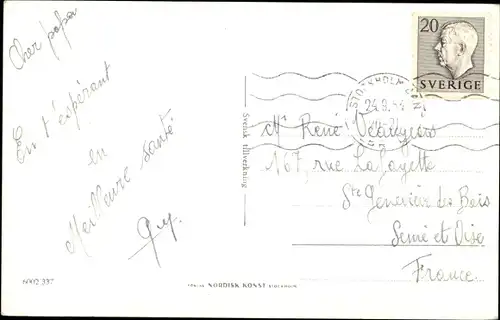 Cher papa
En t'espérant
en
Meilleure santé
Guy.
6902 337
Svensk tillverkning
NORDISK KONST STOCKHOLM
20
SVERIGE
STOCKHOLM
24.9.
Mr René
167, rue Lafayette
Ste Geneviève des Bois
Seine et Oise
France